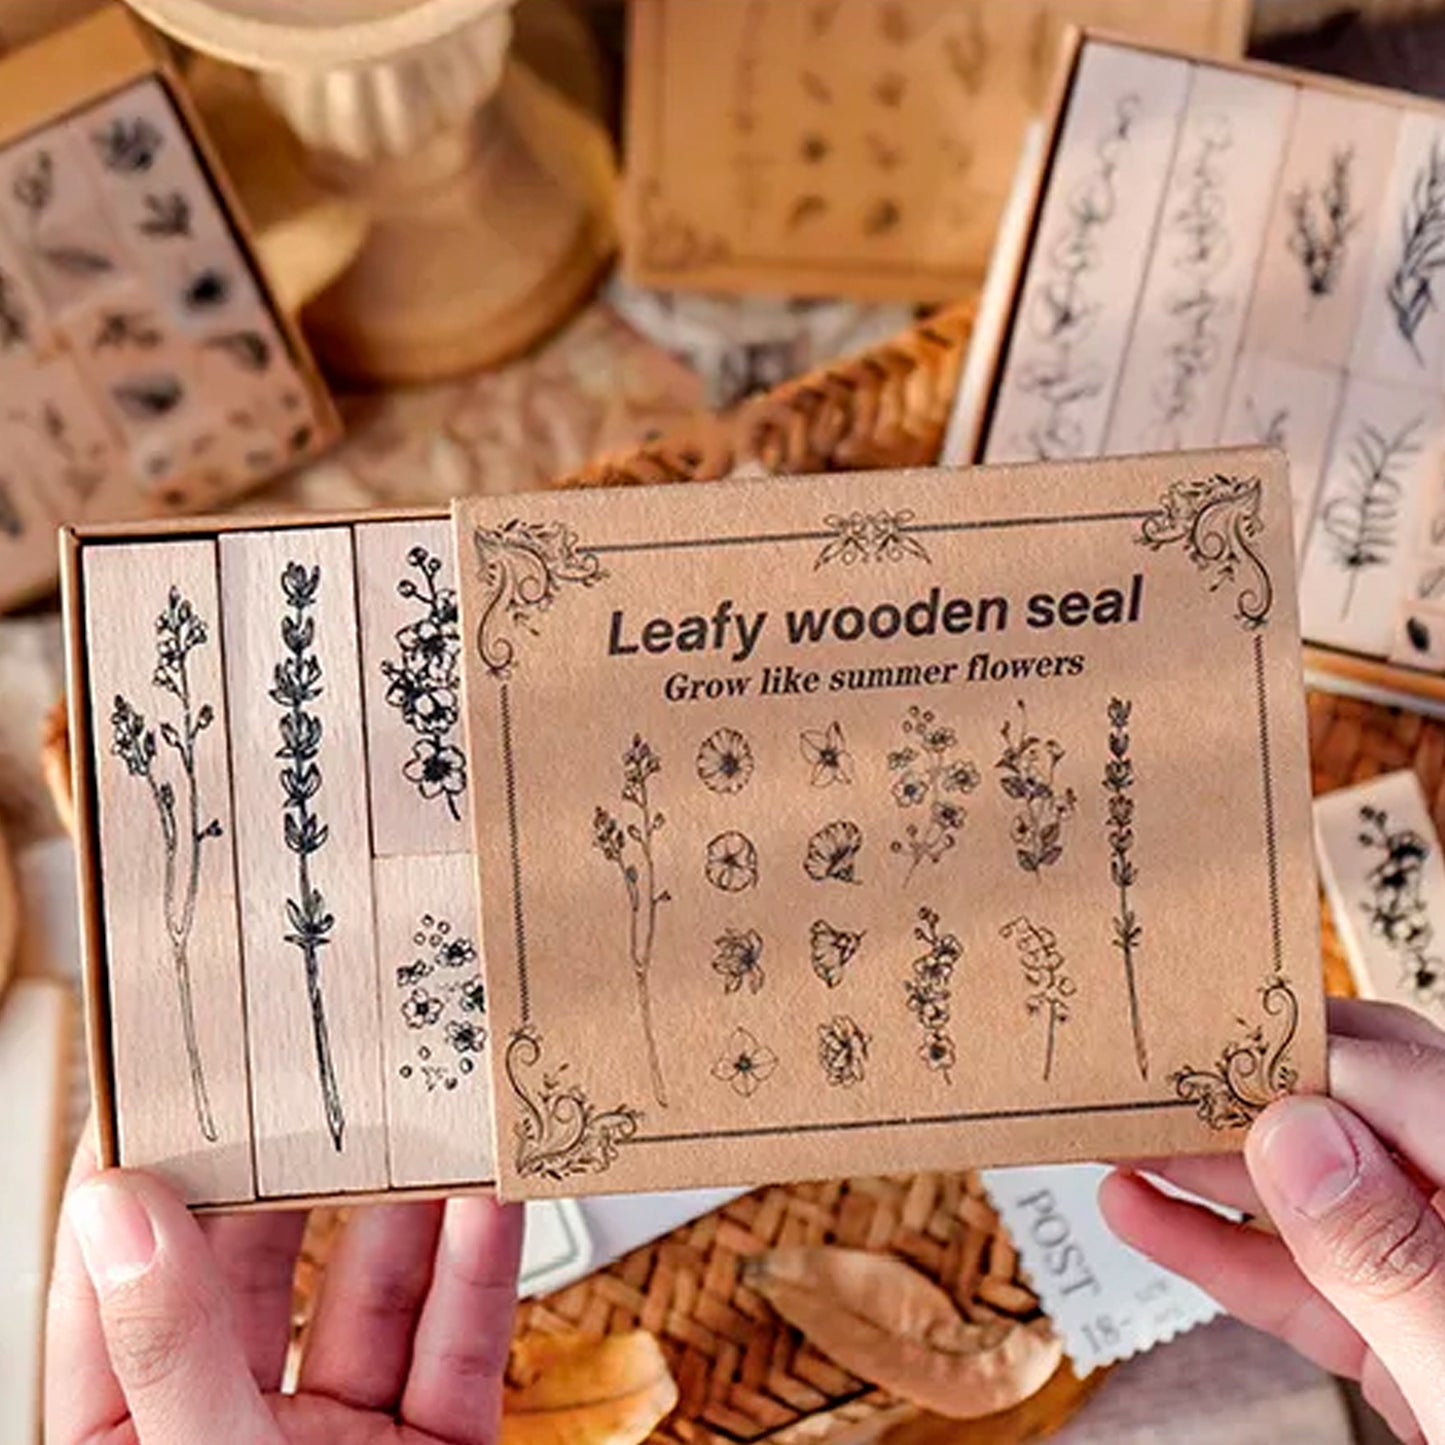 Leafy wooden seal
Grow like summer flowers
POST
18-